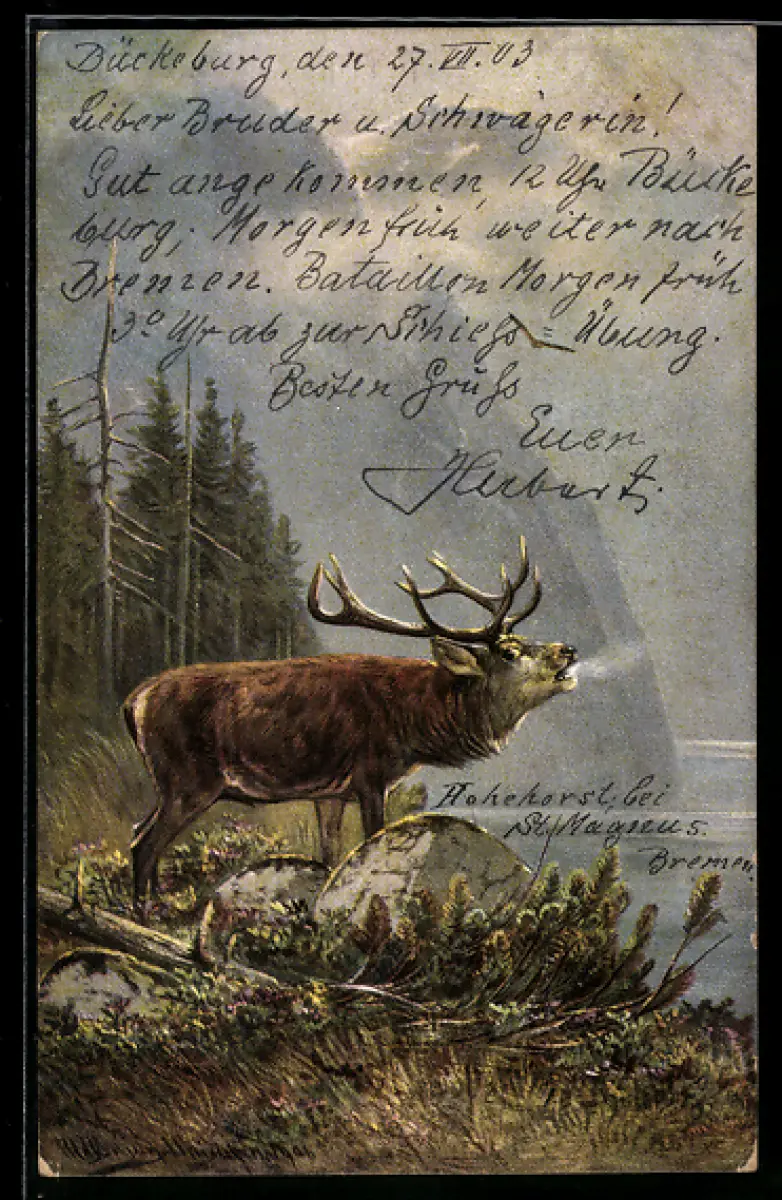 Bückeburg, den 27. VII. 03
Lieber Bruder u. Schwägerin!
Gut angekommen, 12 Uhr Bücke
burg, Morgen früh weiter nach
Bremen. Bataillon Morgen früh
3º Uhr ab zur Schiess = Übung.
Besten Grüss
Euer
Herbert.
Hohehorst, bei
St. Magnus.
Bremen.